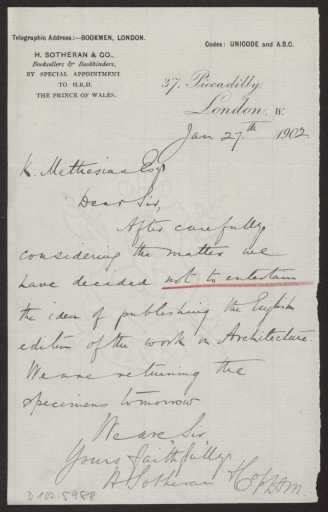 Telegraphic Address:—BOOKMEN, LONDON.
Codes: UNICODE and A.B.C.
H. SOTHERAN & CO.,
Booksellers & Bookbinders,
BY SPECIAL APPOINTMENT
TO H.R.H.
THE PRINCE OF WALES.
37, Piccadilly,
London, W.
Jan 27th 1902
Esq
Dear Sir,
After carefully
considering the matter we
have decided not to entertain
the idea of publishing the English
edition of the work on Architecture.
We are returning the
specimens tomorrow
We are, Sir,
Yours faithfully,
H Sotheran & Co
D 102-5988